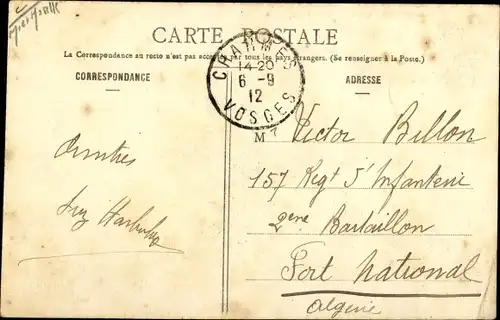 CARTE POSTALE
La Correspondance au recto n'est pas acceptée par tous les pays étrangers. (Se renseigner à la Poste.)
CORRESPONDANCE
ADRESSE
CHARMES
14-20
6 - 9
12
VOSGES
M 7
Victor Billon
157 Regt d'Infanterie
2ème Bataillon
Fort National
Algérie